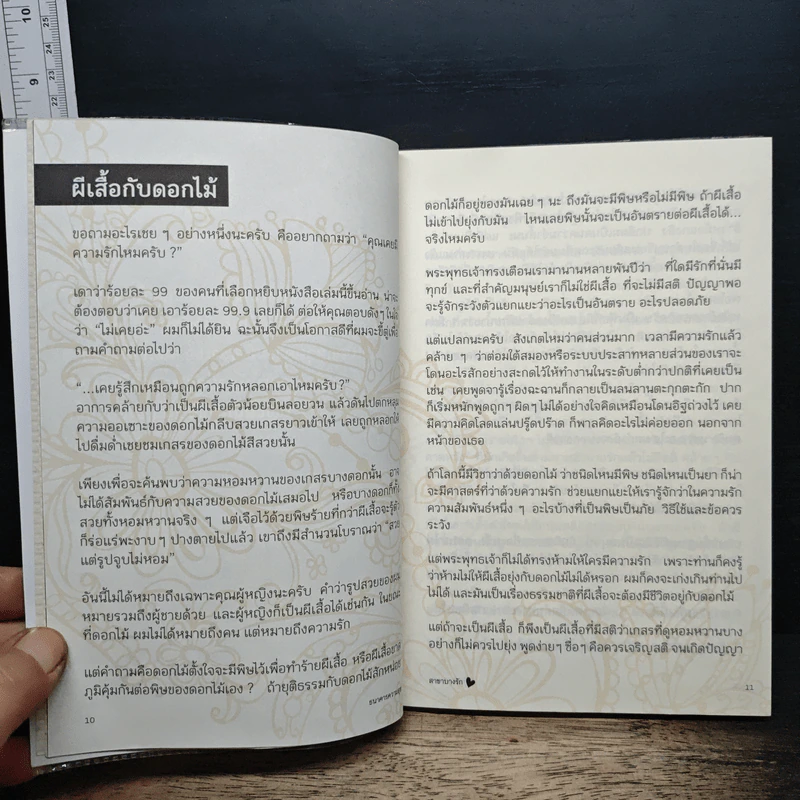 10
9
25
24
23
22
ผีเสื้อกับดอกไม้
ขอถามอะไรเชย ๆ อย่างหนึ่งนะครับ คืออยากถามว่า “คุณเคยมี
ความรักไหมครับ ?”
เดาว่าร้อยละ 99 ของคนที่เลือกหยิบหนังสือเล่มนี้ขึ้นอ่าน น่าจะ
ต้องตอบว่าเคย เอาร้อยละ 99.9 เลยก็ได้ ต่อให้คุณตอบดังๆ ในใจ
ว่า “ไม่เคยอ่ะ” ผมก็ไม่ได้ยิน ฉะนั้นจึงเป็นโอกาสดีที่ผมจะขี้ตู่เพื่อ
ถามคำถามต่อไปว่า
“...เคยรู้สึกเหมือนถูกความรักหลอกเอาไหมครับ?”
อาการคล้ายกับว่าเป็นผีเสื้อตัวน้อยบินลอยวน แล้วดันไปตกหลุม
ความออเซาะของดอกไม้กลีบสวยเกสรยาวเข้าให้ เลยถูกหลอกให้
ไปดื่มด่ำเชยชมเกสรของดอกไม้สีสวยนั้น
เพียงเพื่อจะค้นพบว่าความหอมหวานของเกสรบางดอกนั้น อาจ
ไม่ได้สัมพันธ์กับความสวยของดอกไม้เสมอไป หรือบางดอกก็ทั้ง
สวยทั้งหอมหวานจริง ๆ แต่เจือไว้ด้วยพิษร้ายที่กว่าผีเสื้อจะรู้ตัว
ก็ร่อแร่พะงาบ ๆ ปางตายไปแล้ว เขาถึงมีสำนวนโบราณว่า “สวย
แต่รูปจูบไม่หอม”
อันนี้ไม่ได้หมายถึงเฉพาะคุณผู้หญิงนะครับ คำว่ารูปสวยของผม
หมายรวมถึงผู้ชายด้วย และผู้หญิงก็เป็นผีเสื้อได้เช่นกัน ในขณะ
ที่ดอกไม้ ผมไม่ได้หมายถึงคน แต่หมายถึงความรัก
แต่คำถามคือดอกไม้ตั้งใจจะมีพิษไว้เพื่อทำร้ายผีเสื้อ หรือผีเสื้อ
ภูมิคุ้มกันต่อพิษของดอกไม้เอง ? ถ้ายุติธรรมกับดอกไม้สักหน่อย
10
ธนาคารความสุข
ดอกไม้ก็อยู่ของมันเฉย ๆ นะ ถึงมันจะมีพิษหรือไม่มีพิษ ถ้าผีเสื้อ
ไม่เข้าไปยุ่งกับมัน ไหนเลยพิษนั้นจะเป็นอันตรายต่อผีเสื้อได้...
จริงไหมครับ
พระพุทธเจ้าทรงเตือนเรามานานหลายพันปีว่า ที่ใดมีรักที่นั่นมี
ทุกข์ และที่สำคัญมนุษย์เราก็ไม่ใช่ผีเสื้อ ที่จะไม่มีสติ ปัญญาพอ
จะรู้จักระวังตัวแยกแยะว่าอะไรเป็นอันตราย อะไรปลอดภัย
แต่แปลกนะครับ สังเกตไหมว่าคนส่วนมาก เวลามีความรักแล้ว
คล้าย ๆ ว่าต่อมใต้สมองหรือระบบประสาทหลายส่วนของเราจะ
โดนอะไรสักอย่างสะกดไว้ให้ทำงานในระดับต่ำกว่าปกติที่เคยเป็น
เช่น เคยพูดจารู้เรื่องฉะฉานก็กลายเป็นลนลานตะกุกตะกัก ปาก
ก็เริ่มหนักพูดถูกๆ ผิดๆ ไม่ได้อย่างใจคิดเหมือนโดนอิฐถ่วงไว้ เคย
มีความคิดโลดแล่นปรู๊ดปร๊าด ก็พาลคิดอะไรไม่ค่อยออก นอกจาก
หน้าของเธอ
ถ้าโลกนี้มีวิชาว่าด้วยดอกไม้ ว่าชนิดไหนมีพิษ ชนิดไหนเป็นยา ก็น่า
จะมีศาสตร์ที่ว่าด้วยความรัก ช่วยแยกแยะให้เรารู้จักว่าในความรัก
ความสัมพันธ์หนึ่ง ๆ อะไรบ้างที่เป็นพิษเป็นภัย วิธีใช้และข้อควร
ระวัง
แต่พระพุทธเจ้าก็ไม่ได้ทรงห้ามให้ใครมีความรัก เพราะท่านก็คงรู้
ว่าห้ามไม่ให้ผีเสื้อยุ่งกับดอกไม้ไม่ได้หรอก ผมก็คงจะเก่งเกินท่านไป
ไม่ได้ และมันเป็นเรื่องธรรมชาติที่ผีเสื้อจะต้องมีชีวิตอยู่กับดอกไม้
แต่ถ้าจะเป็นผีเสื้อ ก็พึงเป็นผีเสื้อที่มีสติว่าเกสรที่ดูหอมหวานบาง
อย่างก็ไม่ควรไปยุ่ง พูดง่ายๆ ซื่อๆ คือควรเจริญสติ จนเกิดปัญญา
สาขาบางรัก
11